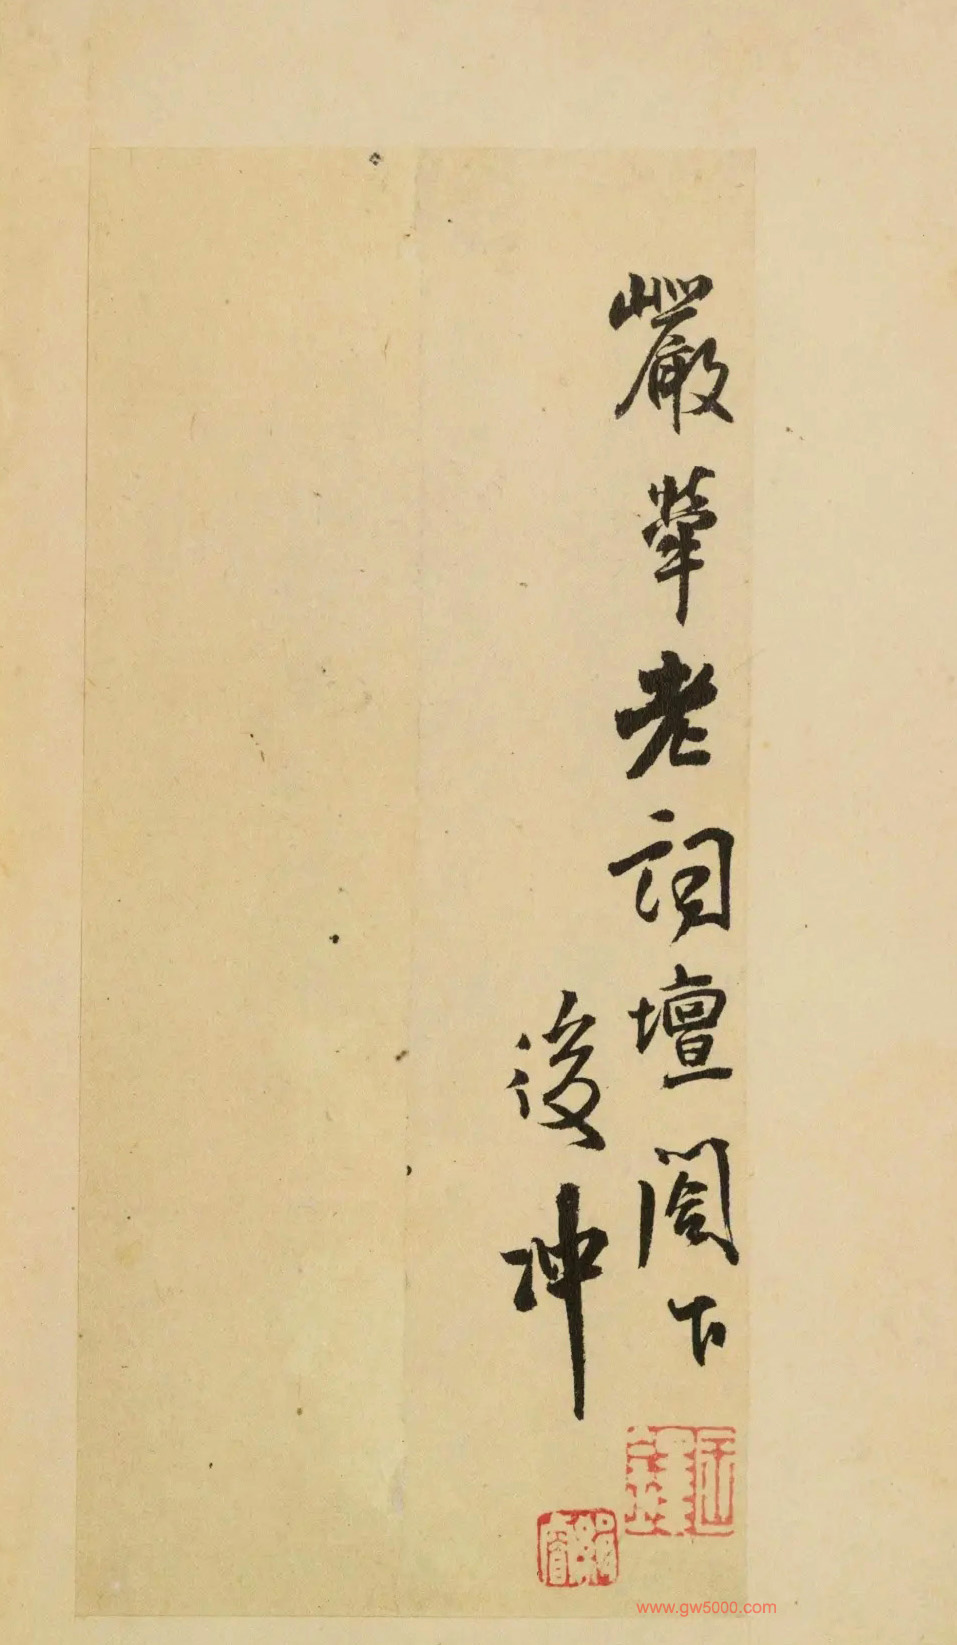 巖犖老詞壇閣下
後冲
www.gw5000.com